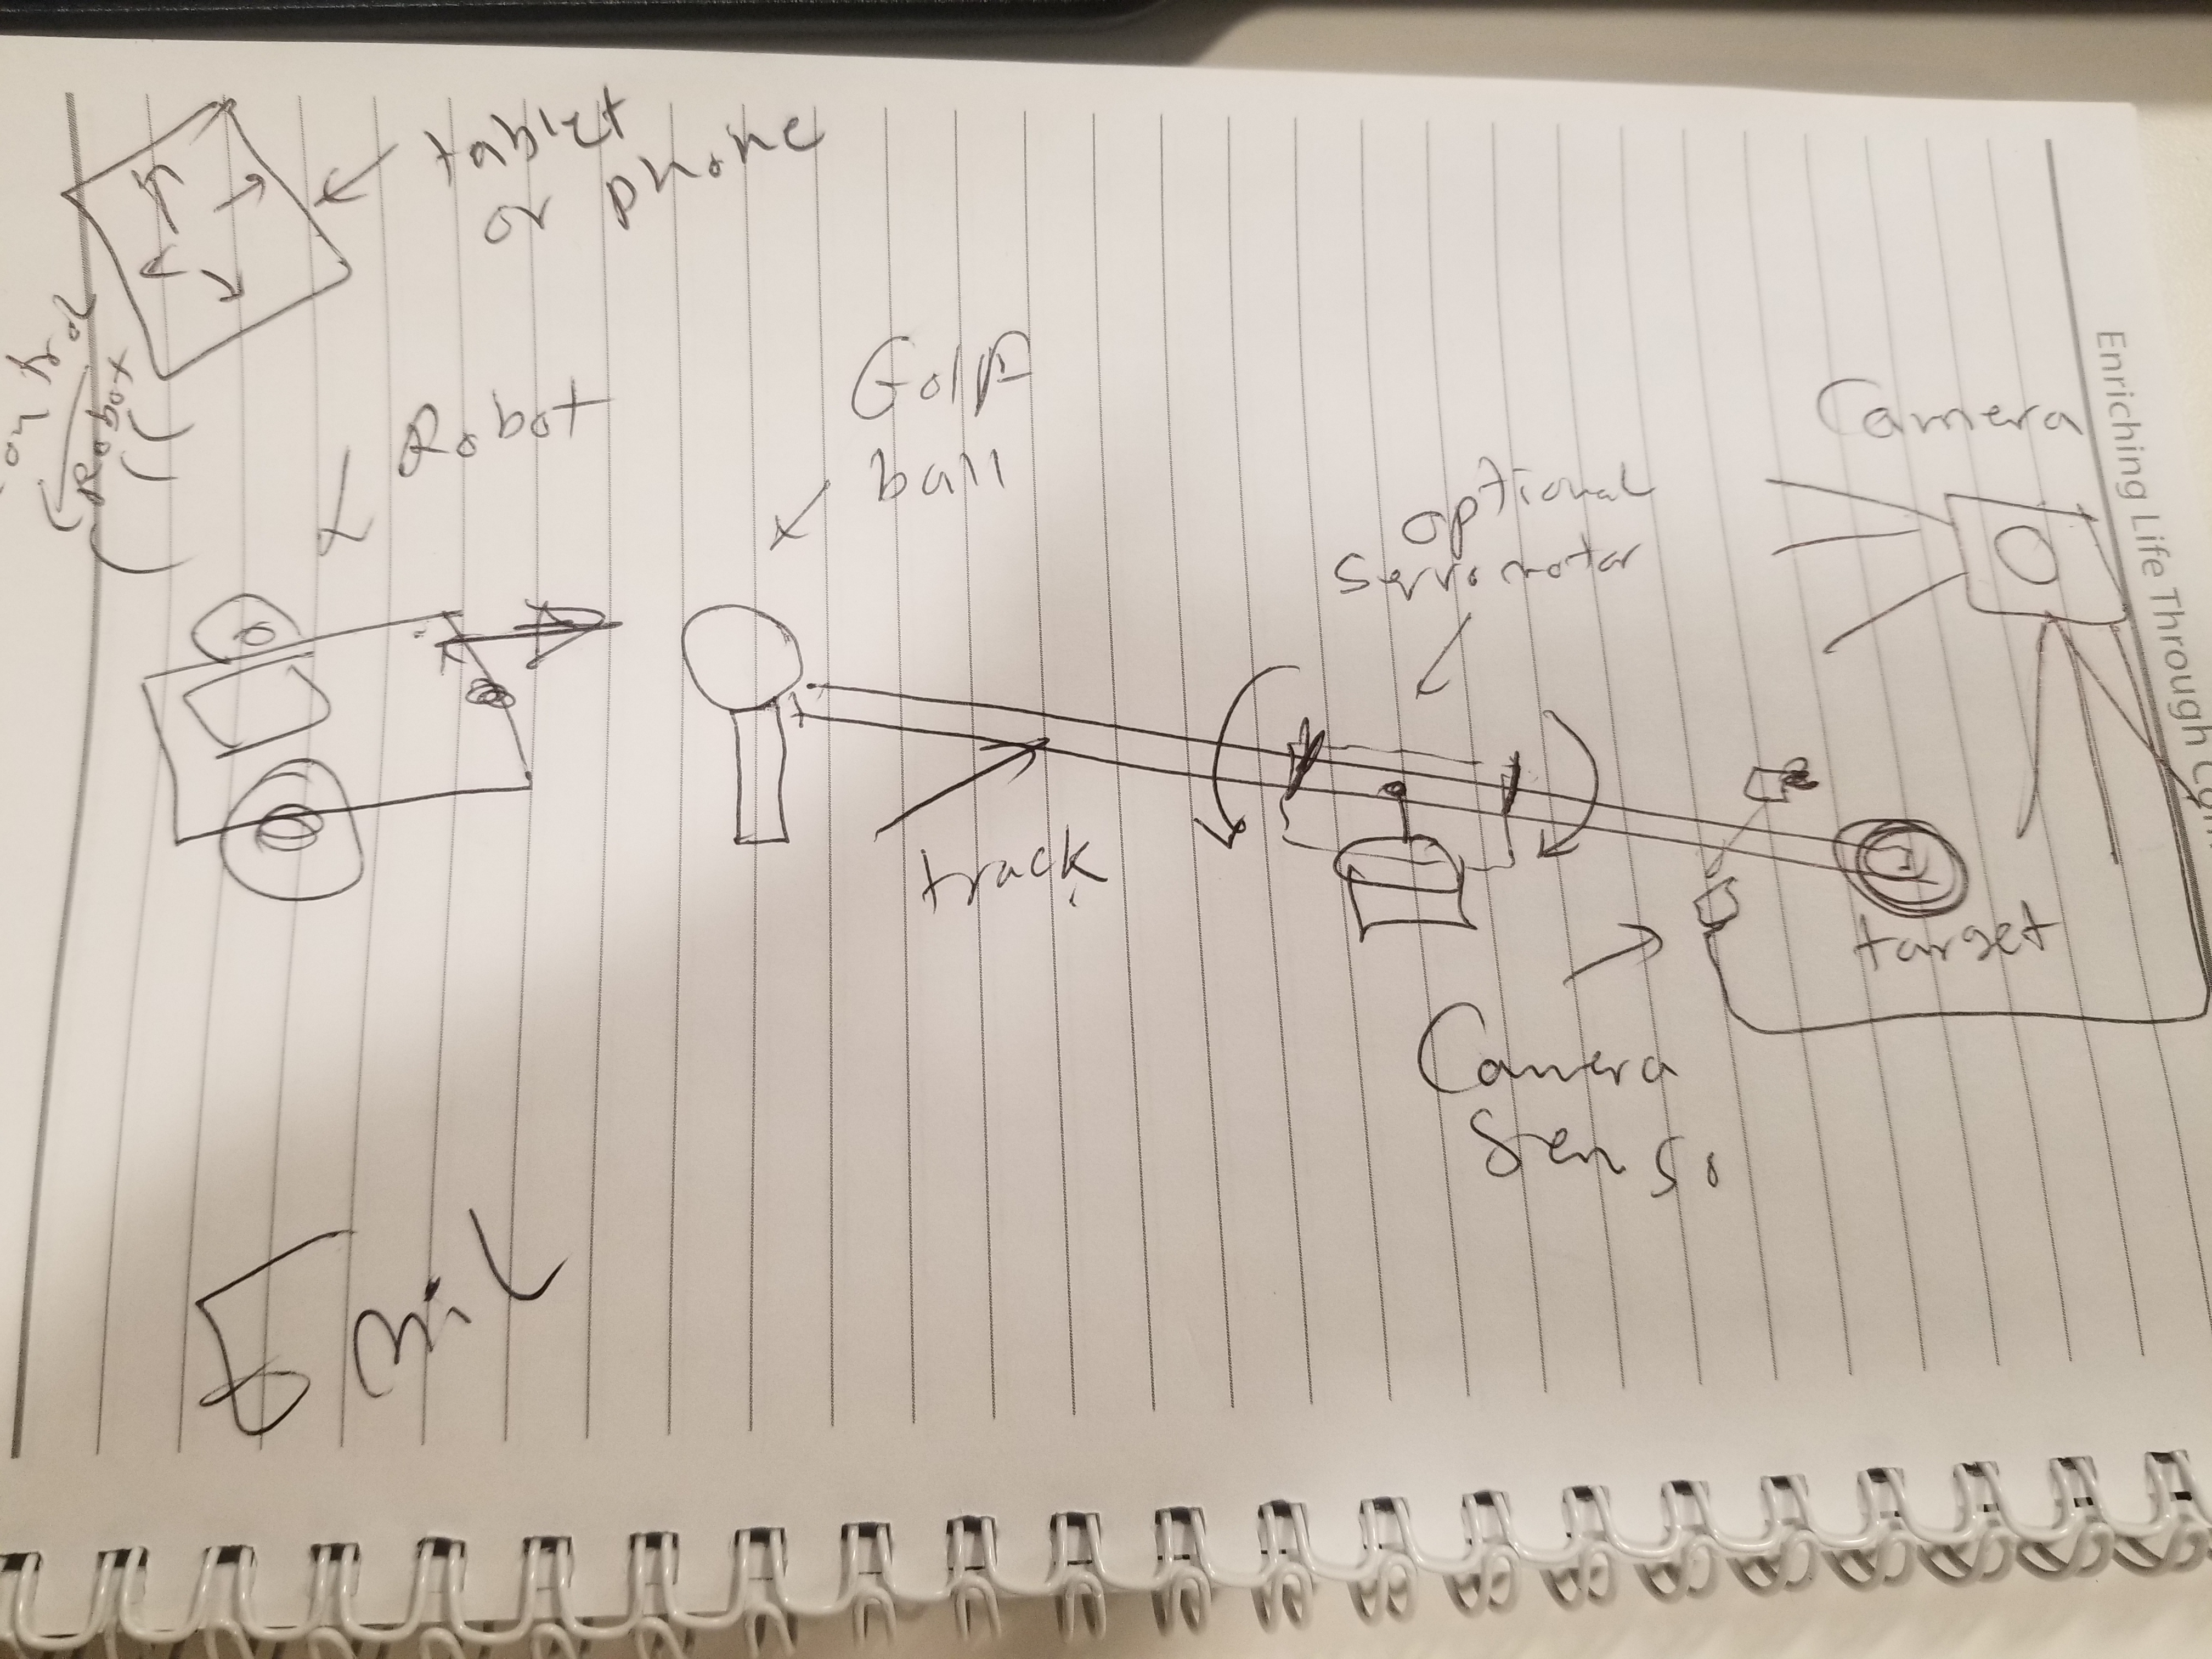 tablet
or phone
Robot
Robot
Golf
ball
optional
Servo motor
Camera
track
target
Camera
Senso
Emil
Enriching Life Through